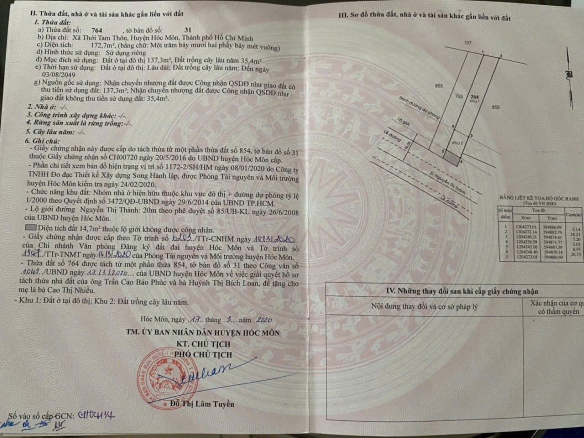 II. Thửa đất, nhà ở và tài sản khác gắn liền với đất
1. Thửa đất:
a) Thửa đất số: 764, tờ bản đồ số: 31
b) Địa chỉ: Xã Thới Tam Thôn, Huyện Hóc Môn, Thành phố Hồ Chí Minh
c) Diện tích: 172,7m², (bằng chữ: Một trăm bảy mươi hai phẩy bảy mét vuông)
d) Hình thức sử dụng: Sử dụng riêng
đ) Mục đích sử dụng: Đất ở tại đô thị 137,3m², Đất trồng cây lâu năm 35,4m²
e) Thời hạn sử dụng: Đất ở tại đô thị: Lâu dài; Đất trồng cây lâu năm: Đến ngày
03/08/2049
g) Nguồn gốc sử dụng: Nhận chuyển nhượng đất được Công nhận QSDĐ như giao đất có
thu tiền sử dụng đất: 137,3m²; Nhận chuyển nhượng đất được Công nhận QSDĐ như
giao đất không thu tiền sử dụng đất: 35,4m².
2. Nhà ở: -/-
3. Công trình xây dựng khác: -/-
4. Rừng sản xuất là rừng trồng: -/-
5. Cây lâu năm: -/-
6. Ghi chú:
- Giấy chứng nhận này được cấp do tách thửa từ một phần thửa đất số 854, tờ bản đồ số 31
thuộc Giấy chứng nhận số CH00720 ngày 20/5/2016 do UBND huyện Hóc Môn cấp.
- Phần chi tiết xem bản đồ hiện trạng vị trí số 1172-2/SH/HM ngày 08/01/2020 do Công ty
TNHH Đo đạc Thiết kế Xây dựng Song Hành lập, được Phòng Tài nguyên và Môi trường
huyện Hóc Môn kiểm tra ngày 24/02/2020.
- Chức năng khu đất: Nhóm nhà ở hiện hữu thuộc khu vực đô thị + đường dự phóng tỷ lệ
1/2000 theo Quyết định số 3472/QĐ-UBND ngày 29/6/2014 của UBND TP.HCM.
- Lộ giới đường Nguyễn Thị Thành: 20m theo phê duyệt số 85/UB-KL ngày 26/6/2008
của UBND huyện Hóc Môn.
Diện tích 14,7m² thuộc lộ giới không được công nhận.
- Giấy chứng nhận được cấp theo Tờ trình số /TTr-CNHM ngày
của Chi nhánh Văn phòng Đăng ký đất đai huyện Hóc Môn và Tờ trình số
/TTr-TNMT ngày của Phòng Tài nguyên và Môi trường huyện Hóc Môn.
- Thửa đất số 764 được tách từ một phần thửa 854, tờ bản đồ số 31 theo Công văn số
/UBND ngày của UBND huyện Hóc Môn về việc giải quyết hồ sơ
tách thửa nhà đất của ông Trần Cao Bảo Phúc và bà Huỳnh Thị Bích Loan, để tặng cho
mẹ là bà Cao Thị Nhiều.
- Khu 1: Đất ở tại đô thị; Khu 2: Đất trồng cây lâu năm.
Hóc Môn, ngày 2020
TM. ỦY BAN NHÂN DÂN HUYỆN HÓC MÔN
KT. CHỦ TỊCH
PHÓ CHỦ TỊCH
Đỗ Thị Lâm Tuyền
Số vào sổ cấp GCN:
III. Sơ đồ thửa đất, nhà ở và tài sản khác gắn liền với đất
137
855
768
764
855
Lề đường
BẢNG LIỆT KÊ TỌA ĐỘ GÓC RANH
IV. Những thay đổi sau khi cấp giấy chứng nhận
Nội dung thay đổi và cơ sở pháp lý
Xác nhận của cơ quan
có thẩm quyền